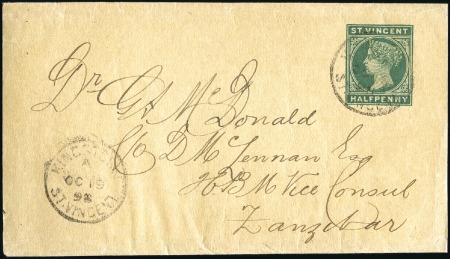 ST. VINCENT
HALFPENNY
Dr G A McDonald
C/o D McLennan Esq
HBM Vice Consul
Zanzibar
KINGSTOWN
A
OC 19
98
ST. VINCENT